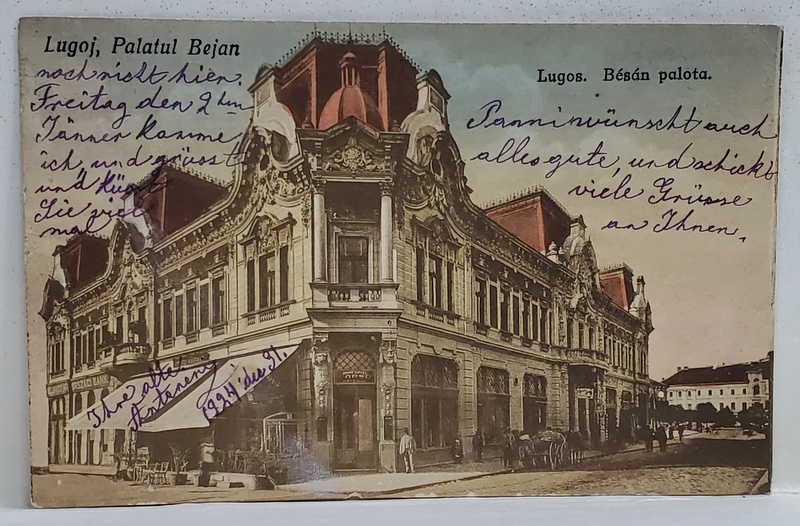 Lugoj, Palatul Bejan
Lugos. Bésán palota.
noch nicht hier,
Freitag den 2ten
Jänner komme
ich, und grüsst
und küsst
Sie viel
mal
Ihre alte
1924 dec 31.
Panni wünscht auch
alles gute, und schickt
viele Grüsse
an Ihnen,